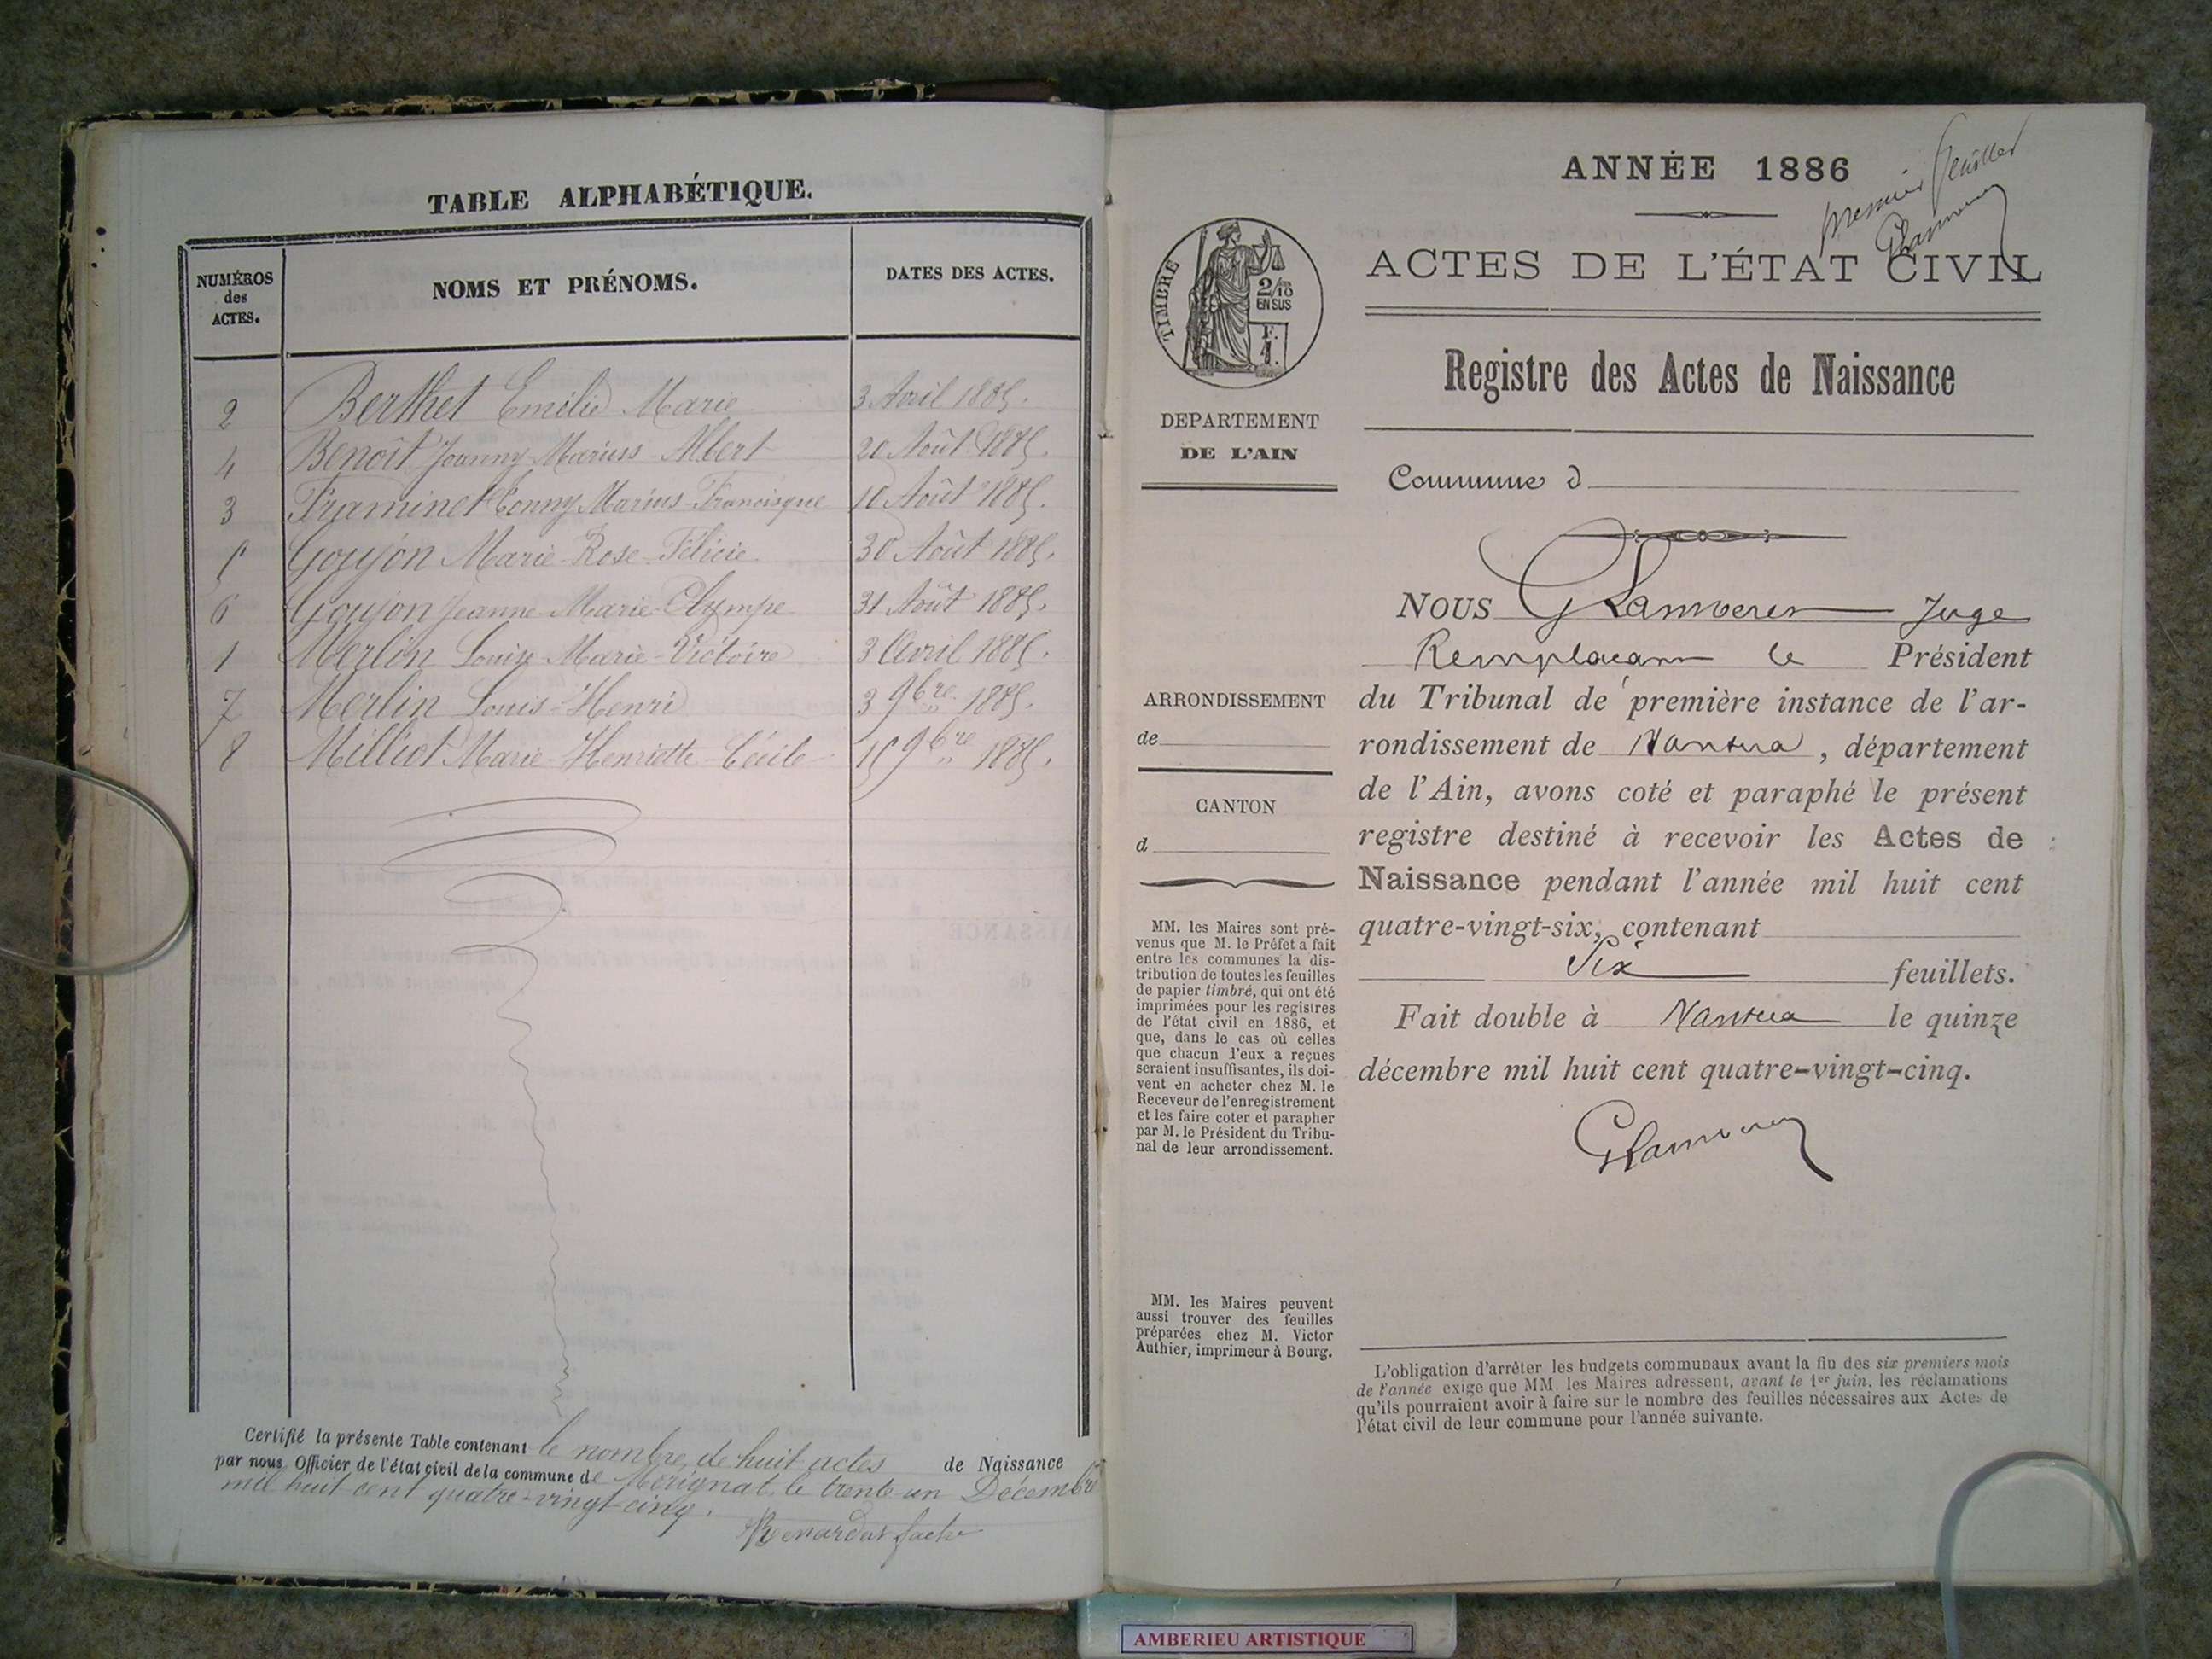 TABLE ALPHABÉTIQUE.
NUMÉROS des ACTES.
NOMS ET PRÉNOMS.
DATES DES ACTES.
2 Berthet Emilie Marie 3 Avril 1885.
4 Benoît Joanny Marius Albert 20 Août 1885.
3 Framinet Tonny Marius Francisque 10 Août 1885.
5 Goujon Marie Rose Félicie 30 Août 1885.
6 Goujon Jeanne Marie Olympe 31 Août 1885.
1 Merlin Louise Marie Victoire 3 Avril 1885.
7 Merlin Louis Henri 3 9bre 1885.
8 Milliot Marie Henriette Cécile 15 9bre 1885.
Certifié la présente Table contenant le nombre de huit actes de Naissance
par nous Officier de l'état civil de la commune de Mérignat le trente un Décembre
mil huit cent quatre-vingt cinq.
premier feuillet
ANNÉE 1886
ACTES DE L'ÉTAT CIVIL
TIMBRE
2/10
EN SUS
Registre des Actes de Naissance
DEPARTEMENT
DE L'AIN
Commune d
NOUS Juge
Remplaçant le Président
du Tribunal de première instance de l'ar-
rondissement de Nantua, département
de l'Ain, avons coté et paraphé le présent
registre destiné à recevoir les Actes de
Naissance pendant l'année mil huit cent
quatre-vingt-six, contenant
Six feuillets.
Fait double à Nantua le quinze
décembre mil huit cent quatre-vingt-cinq.
ARRONDISSEMENT
de
CANTON
d
MM. les Maires sont pré-
venus que M. le Préfet a fait
entre les communes la dis-
tribution de toutes les feuilles
de papier timbré, qui ont été
imprimées pour les registres
de l'état civil en 1886, et
que, dans le cas où celles
que chacun d'eux a reçues
seraient insuffisantes, ils doi-
vent en acheter chez M. le
Receveur de l'enregistrement
et les faire coter et parapher
par M. le Président du Tribu-
nal de leur arrondissement.
MM. les Maires peuvent
aussi trouver des feuilles
préparées chez M. Victor
Authier, imprimeur à Bourg.
L'obligation d'arrêter les budgets communaux avant la fin des six premiers mois
de l'année exige que MM. les Maires adressent, avant le 1er juin, les réclamations
qu'ils pourraient avoir à faire sur le nombre des feuilles nécessaires aux Actes de
l'état civil de leur commune pour l'année suivante.
AMBERIEU ARTISTIQUE